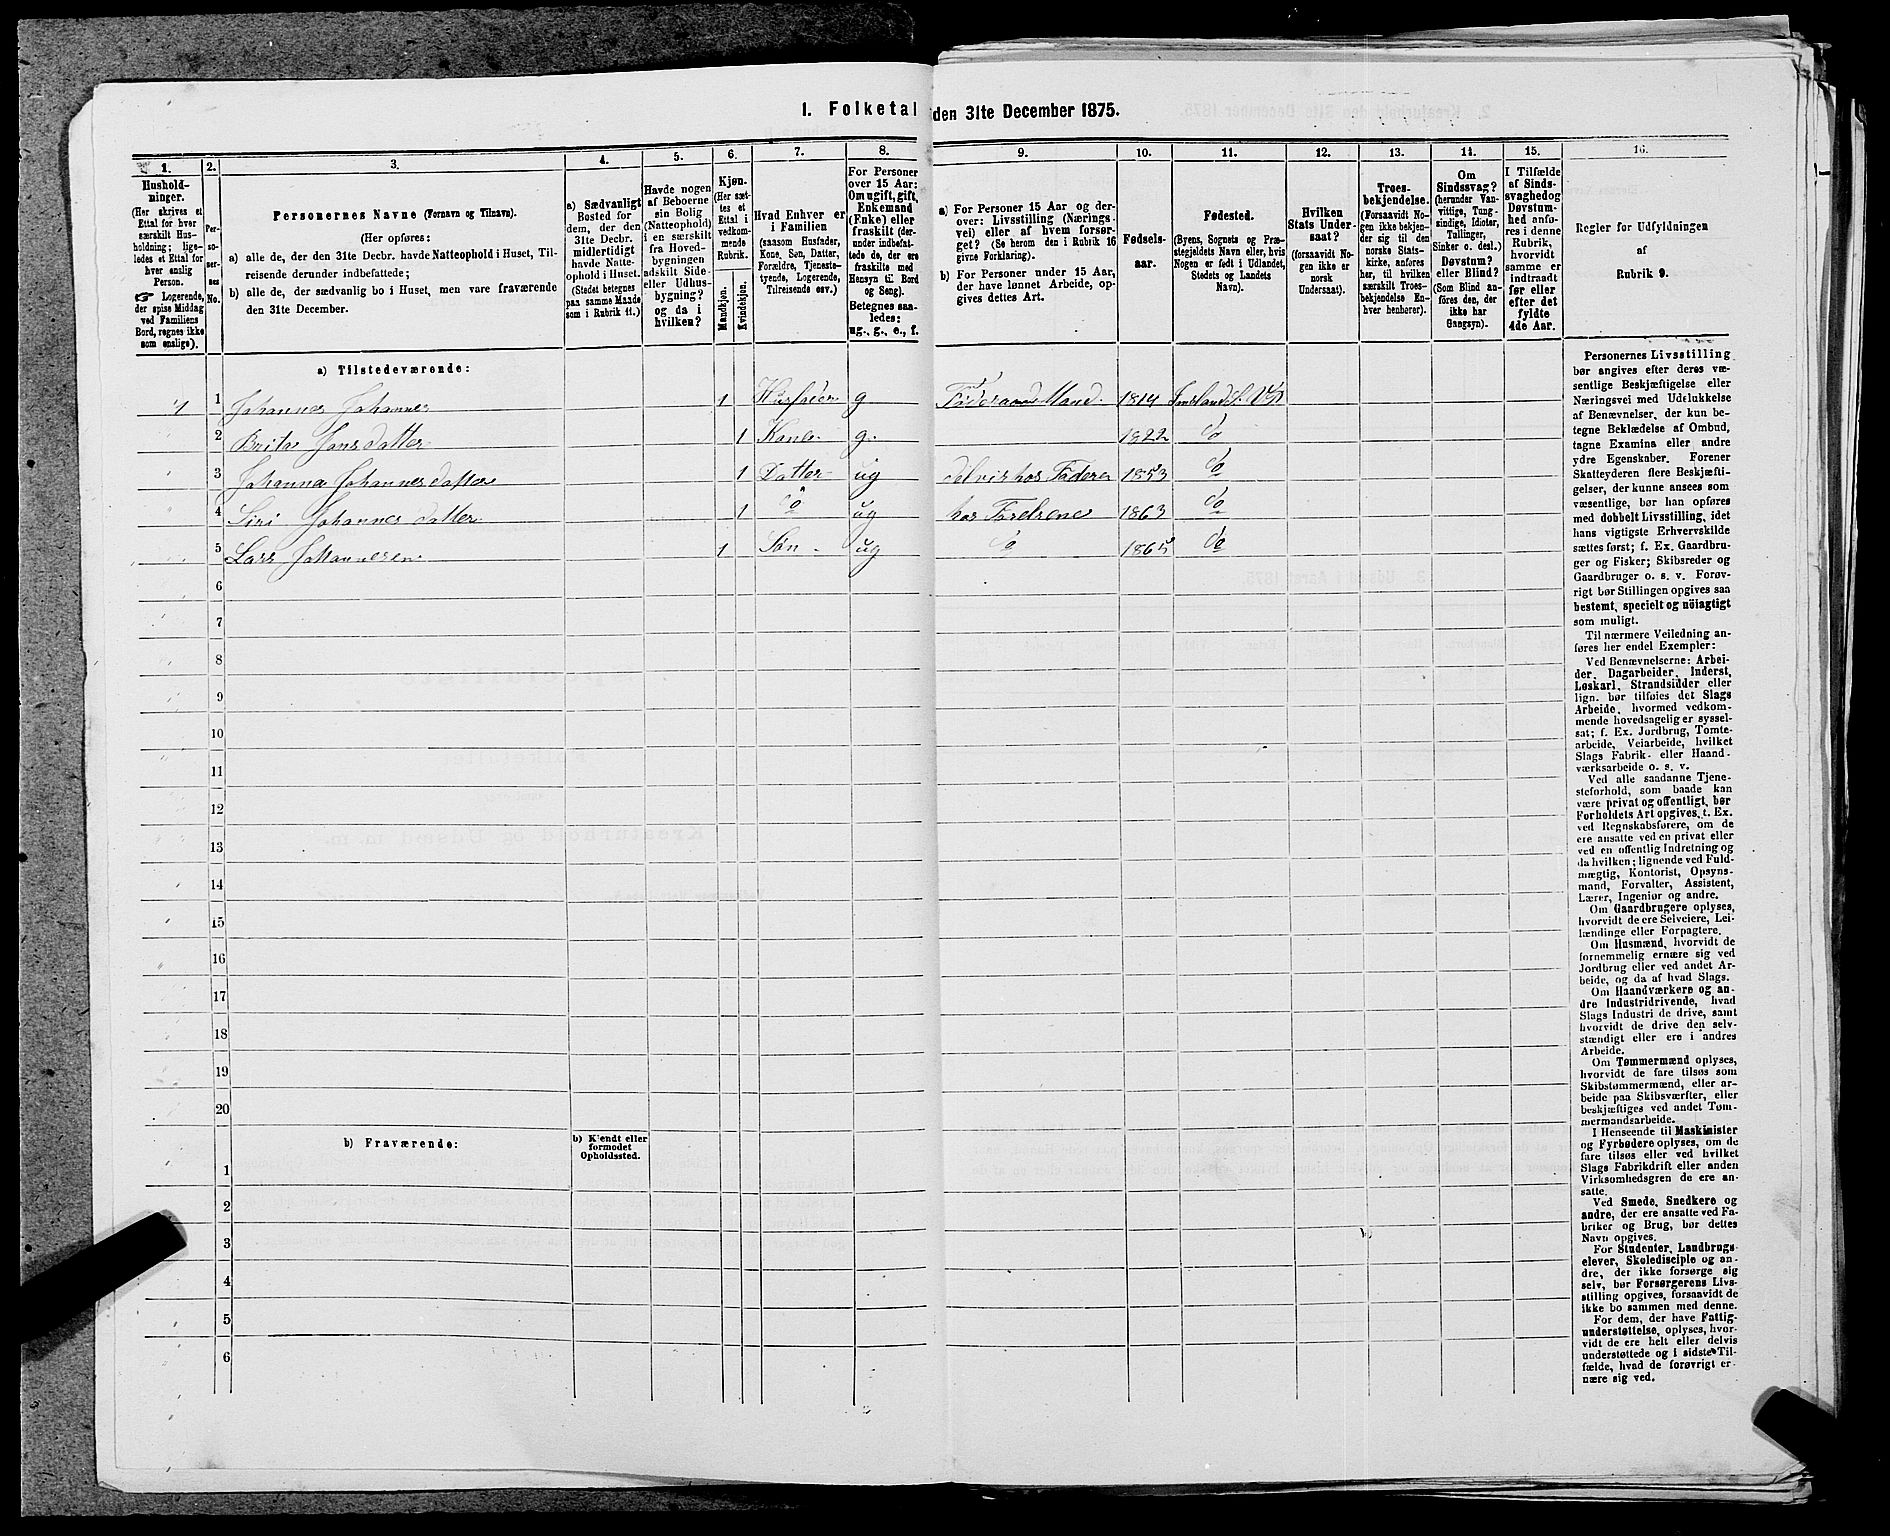 1. Folketal iden 31te December 1875.
1. 2. 3. 4. 5. 6. 7. 8. 9. 10. 11. 12. 13. 14. 15. 16.
Hushold-
ninger.
(Her skrives et
Ettal for hver
særskilt Hus-
holdning; lige-
ledes et Ettal for
hver enslig
Person.
☞ Logerende,
der spise Middag
ved Familiens
Bord, regnes ikke
som enslige).
Per-
so-
ner-
nes
No.
Personernes Navne (Fornavn og Tilnavn).
(Her opføres:
a) alle de, der den 31te Decbr. havde Natteophold i Huset, Til-
reisende derunder indbefattede;
b) alle de, der sædvanlig bo i Huset, men vare fraværende
den 31te December.
a) Sædvanligt
Bosted for
dem, der den
31te Decbr.
midlertidigt
havde Natte-
ophold i Huset.
(Stedet betegnes
paa samme Maade
som i Rubrik 11.)
Havde nogen
af Beboerne
sin Bolig
(Natteophold)
i en særskilt
fra Hoved-
bygningen
adskilt Side-
eller Udhus-
bygning?
og da i
hvilken?
Kjøn.
(Her sæt-
tes et
Ettal i
vedkom-
mende
Rubrik.
Mandkjøn.
Kvindekjøn.
Hvad Enhver er
i Familien
(saasom Husfader,
Kone, Søn, Datter,
Forældre, Tjeneste-
tyende, Logerende,
Tilreisende osv.)
For Personer
over 15 Aar:
Om ugift, gift,
Enkemand
(Enke) eller
fraskilt (der-
under indbefat-
tede de, der ere
fraskilte med
Hensyn til Bord
og Seng).
Betegnes saa-
ledes:
ug., g., e., f.
a) For Personer 15 Aar og der-
over: Livsstilling (Nærings-
vei) eller af hvem forsør-
get? (Se herom den i Rubrik 16
givne Forklaring).
b) For Personer under 15 Aar,
der have lønnet Arbeide, op-
gives dettes Art.
Fødsels-
aar.
Fødested.
(Byens, Sognets og Præ-
stegjeldets Navn eller, hvis
Nogen er født i Udlandet,
Stedets og Landets
Navn).
Hvilken
Stats Under-
saat?
(forsaavidt No-
gen ikke er
norsk
Undersaat).
Troes-
bekjendelse.
(Forsaavidt No-
gen ikke bekjen-
der sig til den
norske Stats-
kirke, anføres
her, til hvilken
særskilt Troes-
bekjendelse En-
hver henhører).
Om
Sindssvag?
(herunder Van-
vittige, Tung-
sindige, Idioter,
Tullinger,
Sinker o. desl.)
Døvstum?
eller Blind?
(Som Blind an-
føres den, der
ikke har
Gangsyn).
I Tilfælde
af Sinds-
svaghed og
Døvstum-
hed anfø-
res i denne
Rubrik,
hvorvidt
samme er
indtraadt
før eller
efter det
fyldte
4de Aar.
Regler for Udfyldningen
af
Rubrik 9.
a) Tilstedeværende:
1 1 Johannes Johannes 1 Husfader g Føderaads Mand. 1814
2 Brita Jansdatter 1 Kone g. 1822 do
3 Johanna Johannesdatter 1 Datter ug delvis hos Fadere 1853 do
4 Siri Johannesdatter 1 do ug hos Forelrene 1863 do
5 Lars Johannesen 1 Søn ug do 1865 do
6
7
8
9
10
11
12
13
14
15
16
17
18
19
20
b) Fraværende:
b) Kjendt eller
formodet
Opholdssted.
1
2
3
4
5
6
Personernes Livsstilling
bør angives efter deres væ-
sentlige Beskjæftigelse eller
Næringsvei med Udelukkelse
af Benævnelser, der kun be-
tegne Beklædelse af Ombud,
tagne Examina eller andre
ydre Egenskaber. Forener
Skatteyderen flere Beskjæfti-
gelser, der kunne ansees som
væsentlige, bør han opføres
med dobbelt Livsstilling, idet
hans vigtigste Erhvervskilde
sættes først; f. Ex. Gaardbru-
ger og Fisker; Skibsreder og
Gaardbruger o. s. v. Forøv-
rigt bør Stillingen opgives saa
bestemt, specielt og nöiagtigt
som muligt.
Til nærmere Veiledning an-
føres her endel Exempler:
Ved Benævnelserne: Arbei-
der, Dagarbeider, Inderst,
Løskarl, Strandsidder eller
lign. bør tilføies det Slags
Arbeide, hvormed vedkom-
mende hovedsagelig er syssel-
sat; f. Ex. Jordbrug, Tomte-
arbeide, Veiarbeide, hvilket
Slags Fabrik- eller Haand-
værksarbeide o. s. v.
Ved alle saadanne Tjene-
steforhold, som baade kan
være privat og offentligt, bør
Forholdets Art opgives, t. Ex.
ved Regnskabsførere, om de
ere ansatte ved en privat eller
ved en offentlig Indretning og
da hvilken; lignende ved Fuld-
mægtig, Kontorist, Opsyns-
mand, Forvalter, Assistent,
Lærer, Ingeniør og andre.
Om Gaardbrugere oplyses,
hvorvidt de ere Selveiere, Lei-
lændinge eller Forpagtere.
Om Husmænd, hvorvidt de
fornemmelig ernære sig ved
Jordbrug eller ved andet Ar-
beide, og da af hvad Slags.
Om Haandværkere og an-
dre Industridrivende, hvad
Slags Industri de drive, samt
hvorvidt de drive den selv-
stændigt eller ere i andres
Arbeide.
Om Tømmermænd oplyses,
hvorvidt de fare tilsøs som
Skibstømmermænd, eller ar-
beide paa Skibsværfter, eller
beskjæftiges ved andet Tøm-
mermandsarbeide.
I Henseende til Maskinister
og Fyrbødere oplyses, om de
fare tilsøs eller ved hvilket
Slags Fabrikdrift eller anden
Virksomhedsgren de ere an-
satte.
Ved Smede, Snedkere og
andre, der ere ansatte ved Fa-
briker og Brug, bør dettes
Navn opgives.
For Studenter, Landbrugs-
elever, Skoledisciple og an-
dre, der ikke forsørge sig
selv, bør Forsørgerens Livs-
stilling opgives, forsaavidt de
ikke bo sammen med denne.
For dem, der have Fattig-
understøttelse, oplyses, hvor-
vidt de ere helt eller delvis
understøttede og i sidste Til-
fælde, hvad de forøvrigt er-
nære sig ved.